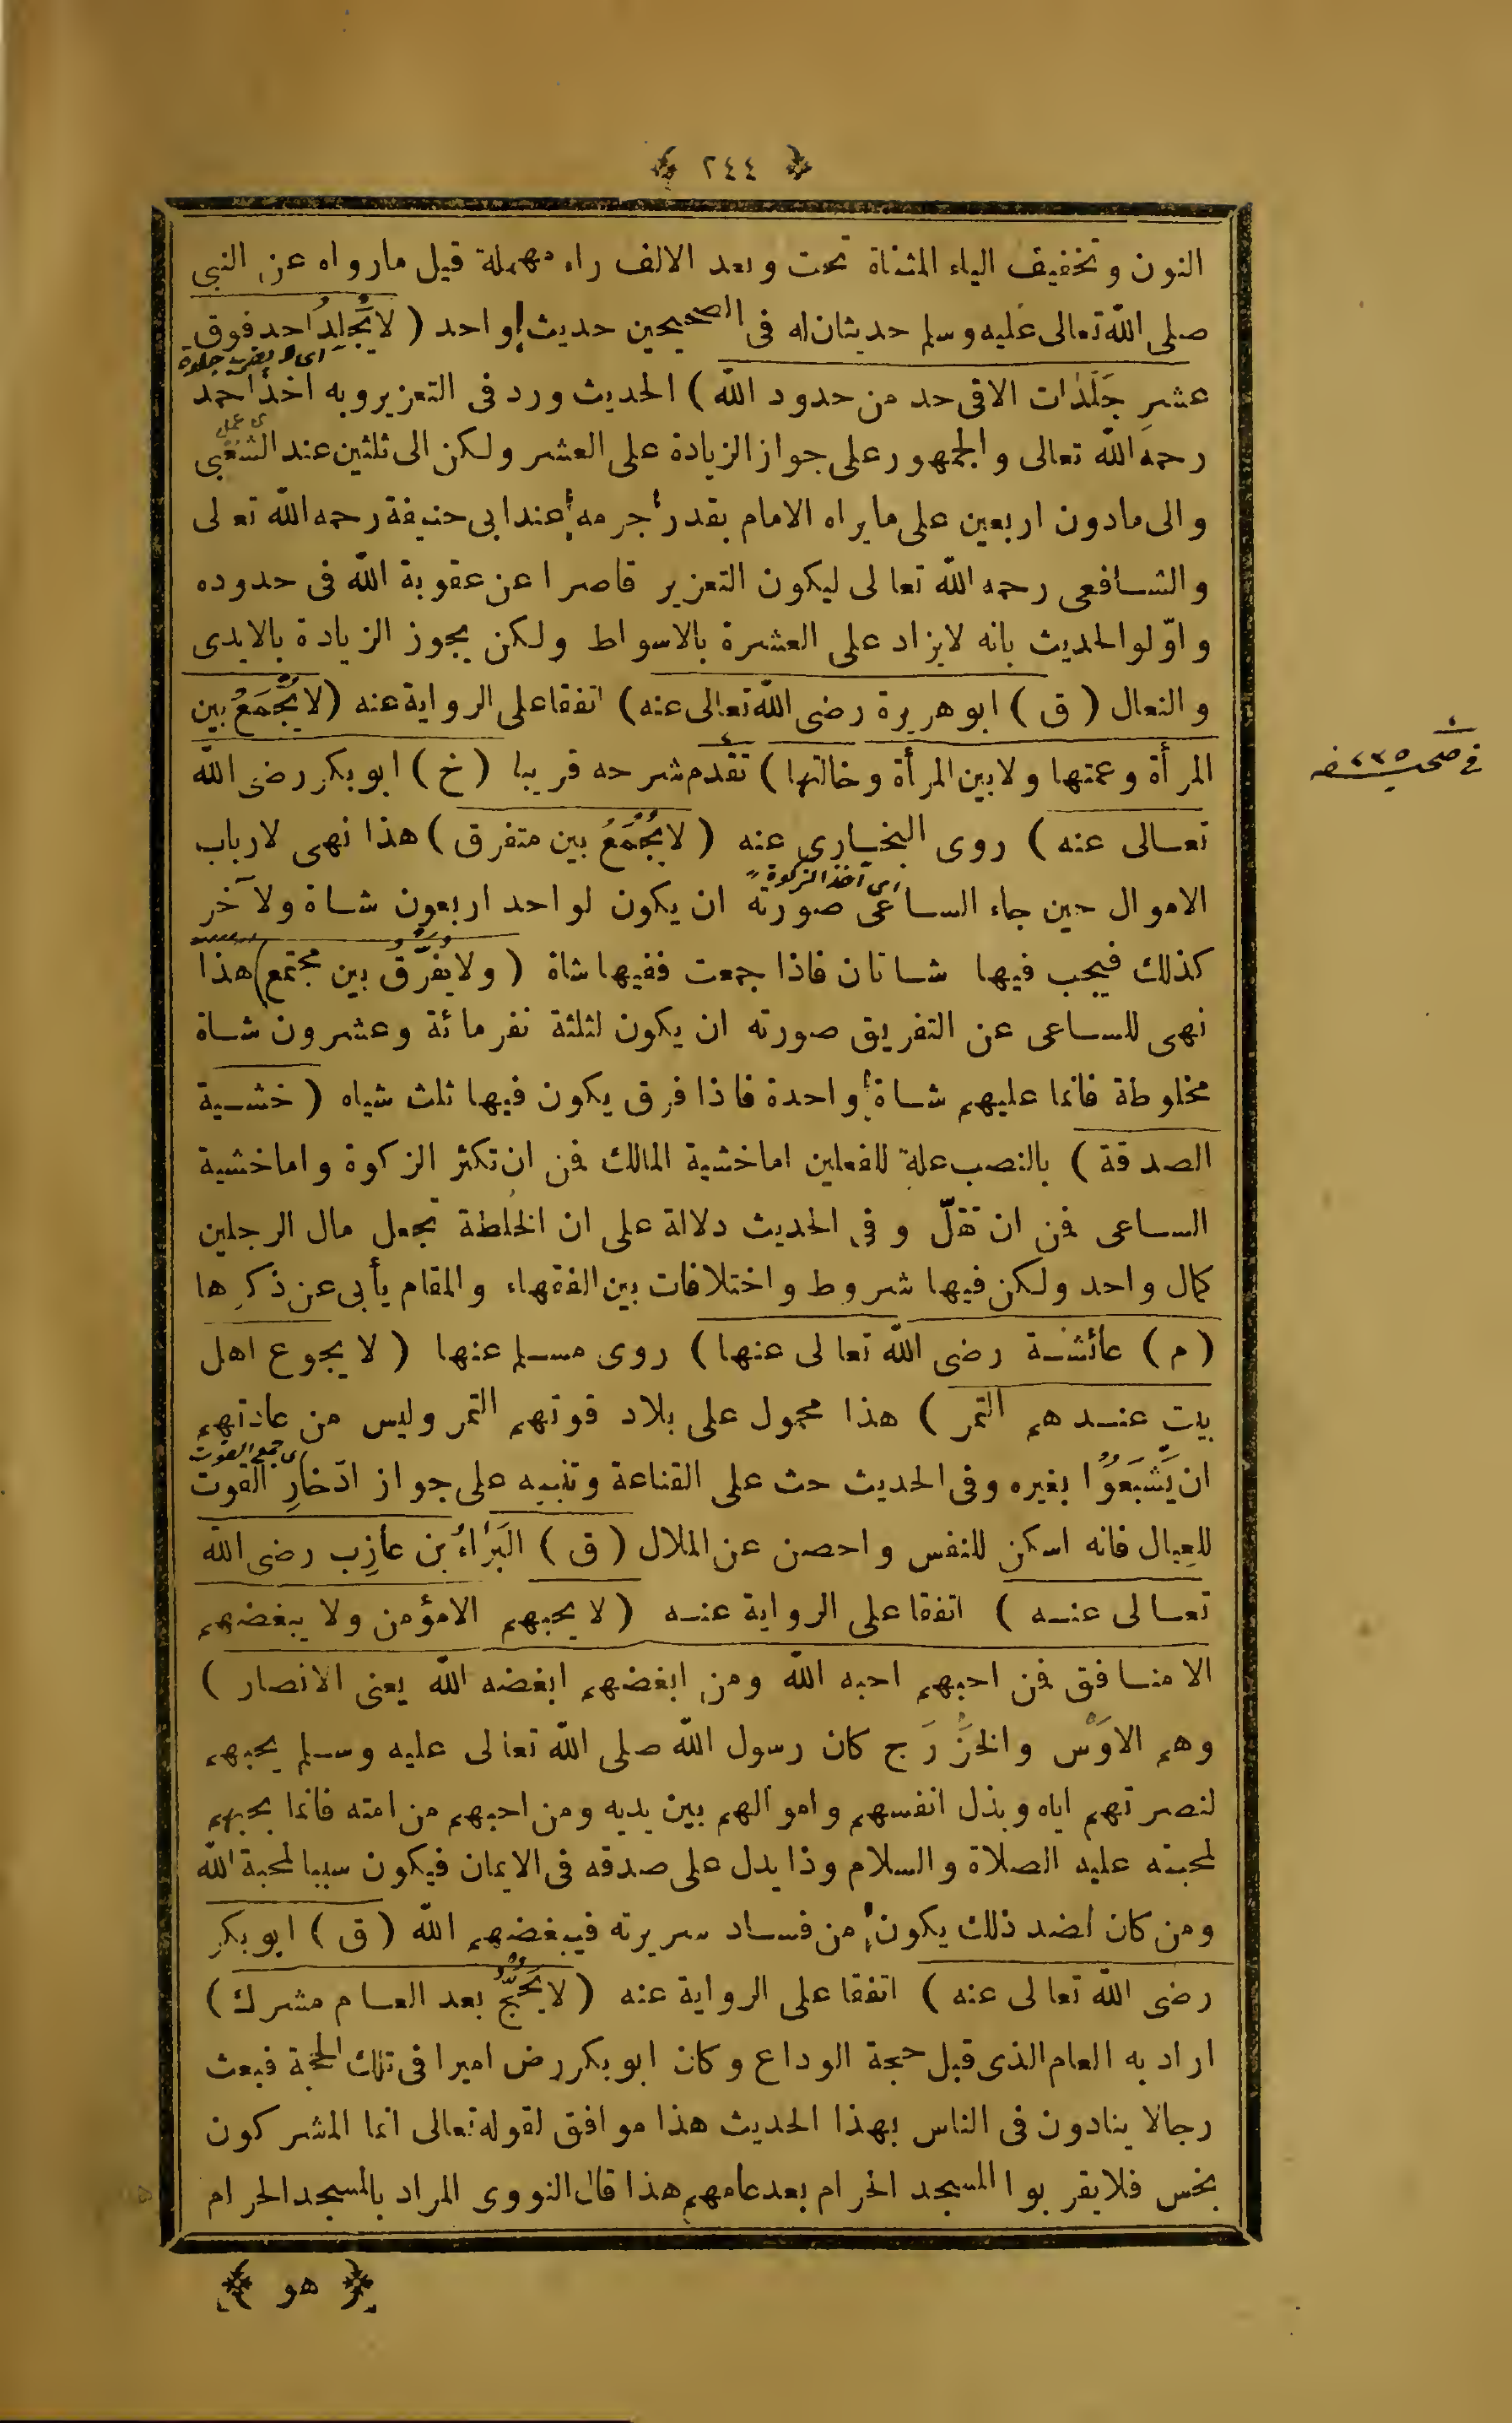 ﴿ ٢٤٤ ﴾
النون وتخفيف الياء المثناة تحت وبعد الالف راء مهملة قيل مارواه عن النبى
صلى الله تعالى عليه وسلم حديثان له فى الصحيحين حديث واحد ( لا يُجْلَدُ احد فوق
عشرِ جَلَدَات الا فى حد من حدود الله ) الحديث ورد فى التعزير وبه اخذ احمد
رحمه الله تعالى والجمهور على جواز الزيادة على العشر ولكن الى ثلثين عند الشعبى
والى مادون اربعين على مايراه الامام بقدر جرمه عند ابى حنيفة رحمه الله تعالى
والشافعى رحمه الله تعالى ليكون التعزير قاصرا عن عقوبة الله فى حدوده
واوّلوا الحديث بانه لايزاد على العشرة بالاسواط ولكن يجوز الزيادة بالايدى
والنعال ( ق ) ابو هريرة رضى الله تعالى عنه ) اتفقا على الرواية عنه ( لا يُجْمَعُ بين
المرأة وعمتها ولا بين المرأة وخالتها ) تقدم شرحه قريبا ( خ ) ابو بكر رضى الله
فى صحيفه ٢٣٥
تعالى عنه ) روى البخارى عنه ( لا يُجْمَعُ بين متفرق ) هذا نهى لارباب
اى آخذ الزكوة
الاموال حين جاء الساعى صورته ان يكون لواحد اربعون شاة ولآخر
كذلك فيجب فيها شاتان فاذا جمعت ففيها شاة ( ولا يُفَرَّقُ بين مجتمع ) هذا
نهى للساعى عن التفريق صورته ان يكون لثلثة نفر مائة وعشرون شاة
مخلوطة فانما عليهم شاة واحدة فاذا فرق يكون فيها ثلث شياه ( خشية
الصدقة ) بالنصب علة للفعلين اما خشية المالك فمن ان تكثر الزكوة واما خشية
الساعى فمن ان تقلّ وفى الحديث دلالة على ان الخلطة تجعل مال الرجلين
كمال واحد ولكن فيها شروط واختلافات بين الفقهاء والمقام يأبى عن ذكرها
( م ) عائشة رضى الله تعالى عنها ) روى مسلم عنها ( لا يجوع اهل
بيت عندهم التمر ) هذا محمول على بلاد قوتهم التمر وليس من عادتهم
اى جمع القوت
ان يَشْبَعُوا بغيره وفى الحديث حث على القناعة وتنبيه على جواز ادّخارِ القوت
للعيال فانه اسكن للنفس واحصن عن الملال ( ق ) البَرَاءُ بن عازِب رضى الله
تعالى عنه ) اتفقا على الرواية عنه ( لا يحبهم الا مؤمن ولا يبغضهم
الا منافق فمن احبهم احبه الله ومن ابغضهم ابغضه الله يعنى الانصار )
وهم الاَوْس والخَزْرَج كان رسول الله صلى الله تعالى عليه وسلم يحبهم
لنصرتهم اياه وبذل انفسهم واموالهم بين يديه ومن احبهم من امته فانما يحبهم
لمحبته عليه الصلاة والسلام وذا يدل على صدقه فى الايمان فيكون سببا لمحبة الله
ومن كان لضد ذلك يكون من فساد سريرته فيبغضهم الله ( ق ) ابو بكر
رضى الله تعالى عنه ) اتفقا على الرواية عنه ( لا يَحُجُّ بعد العام مشرك )
اراد به العام الذى قبل حجة الوداع وكان ابو بكر رض اميرا فى تلك الحجة فبعث
رجالا ينادون فى الناس بهذا الحديث هذا موافق لقوله تعالى انما المشركون
نجس فلا يقربوا المسجد الحرام بعد عامهم هذا قال النووى المراد بالمسجد الحرام
﴿ هو ﴾